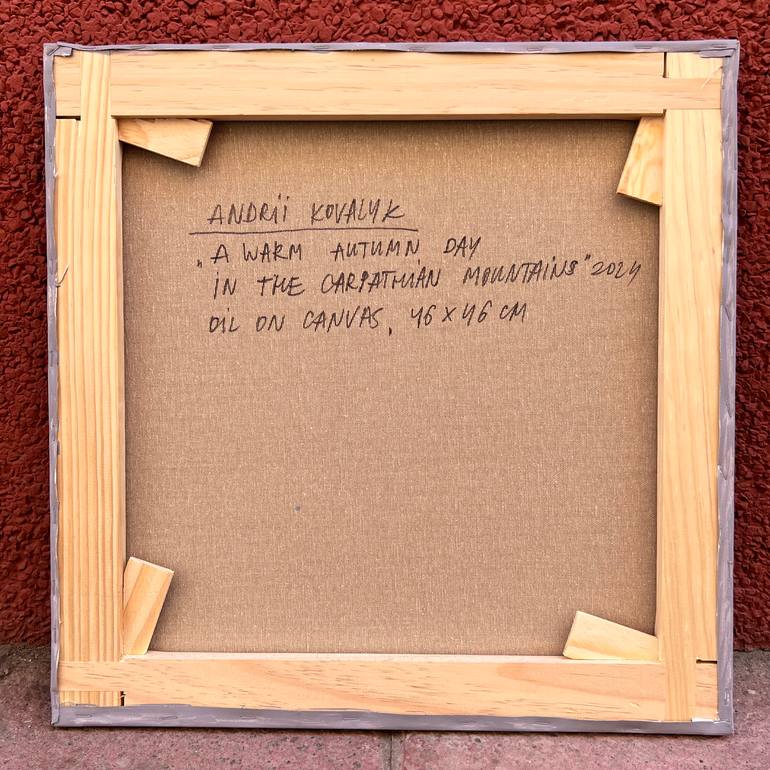 ANDRii KOVALYK
„A WARM AUTUMN DAY
iN THE CARPATHiAN MOUNTAiNS" 2024
OiL ON CANVAS, 46 x 46 CM